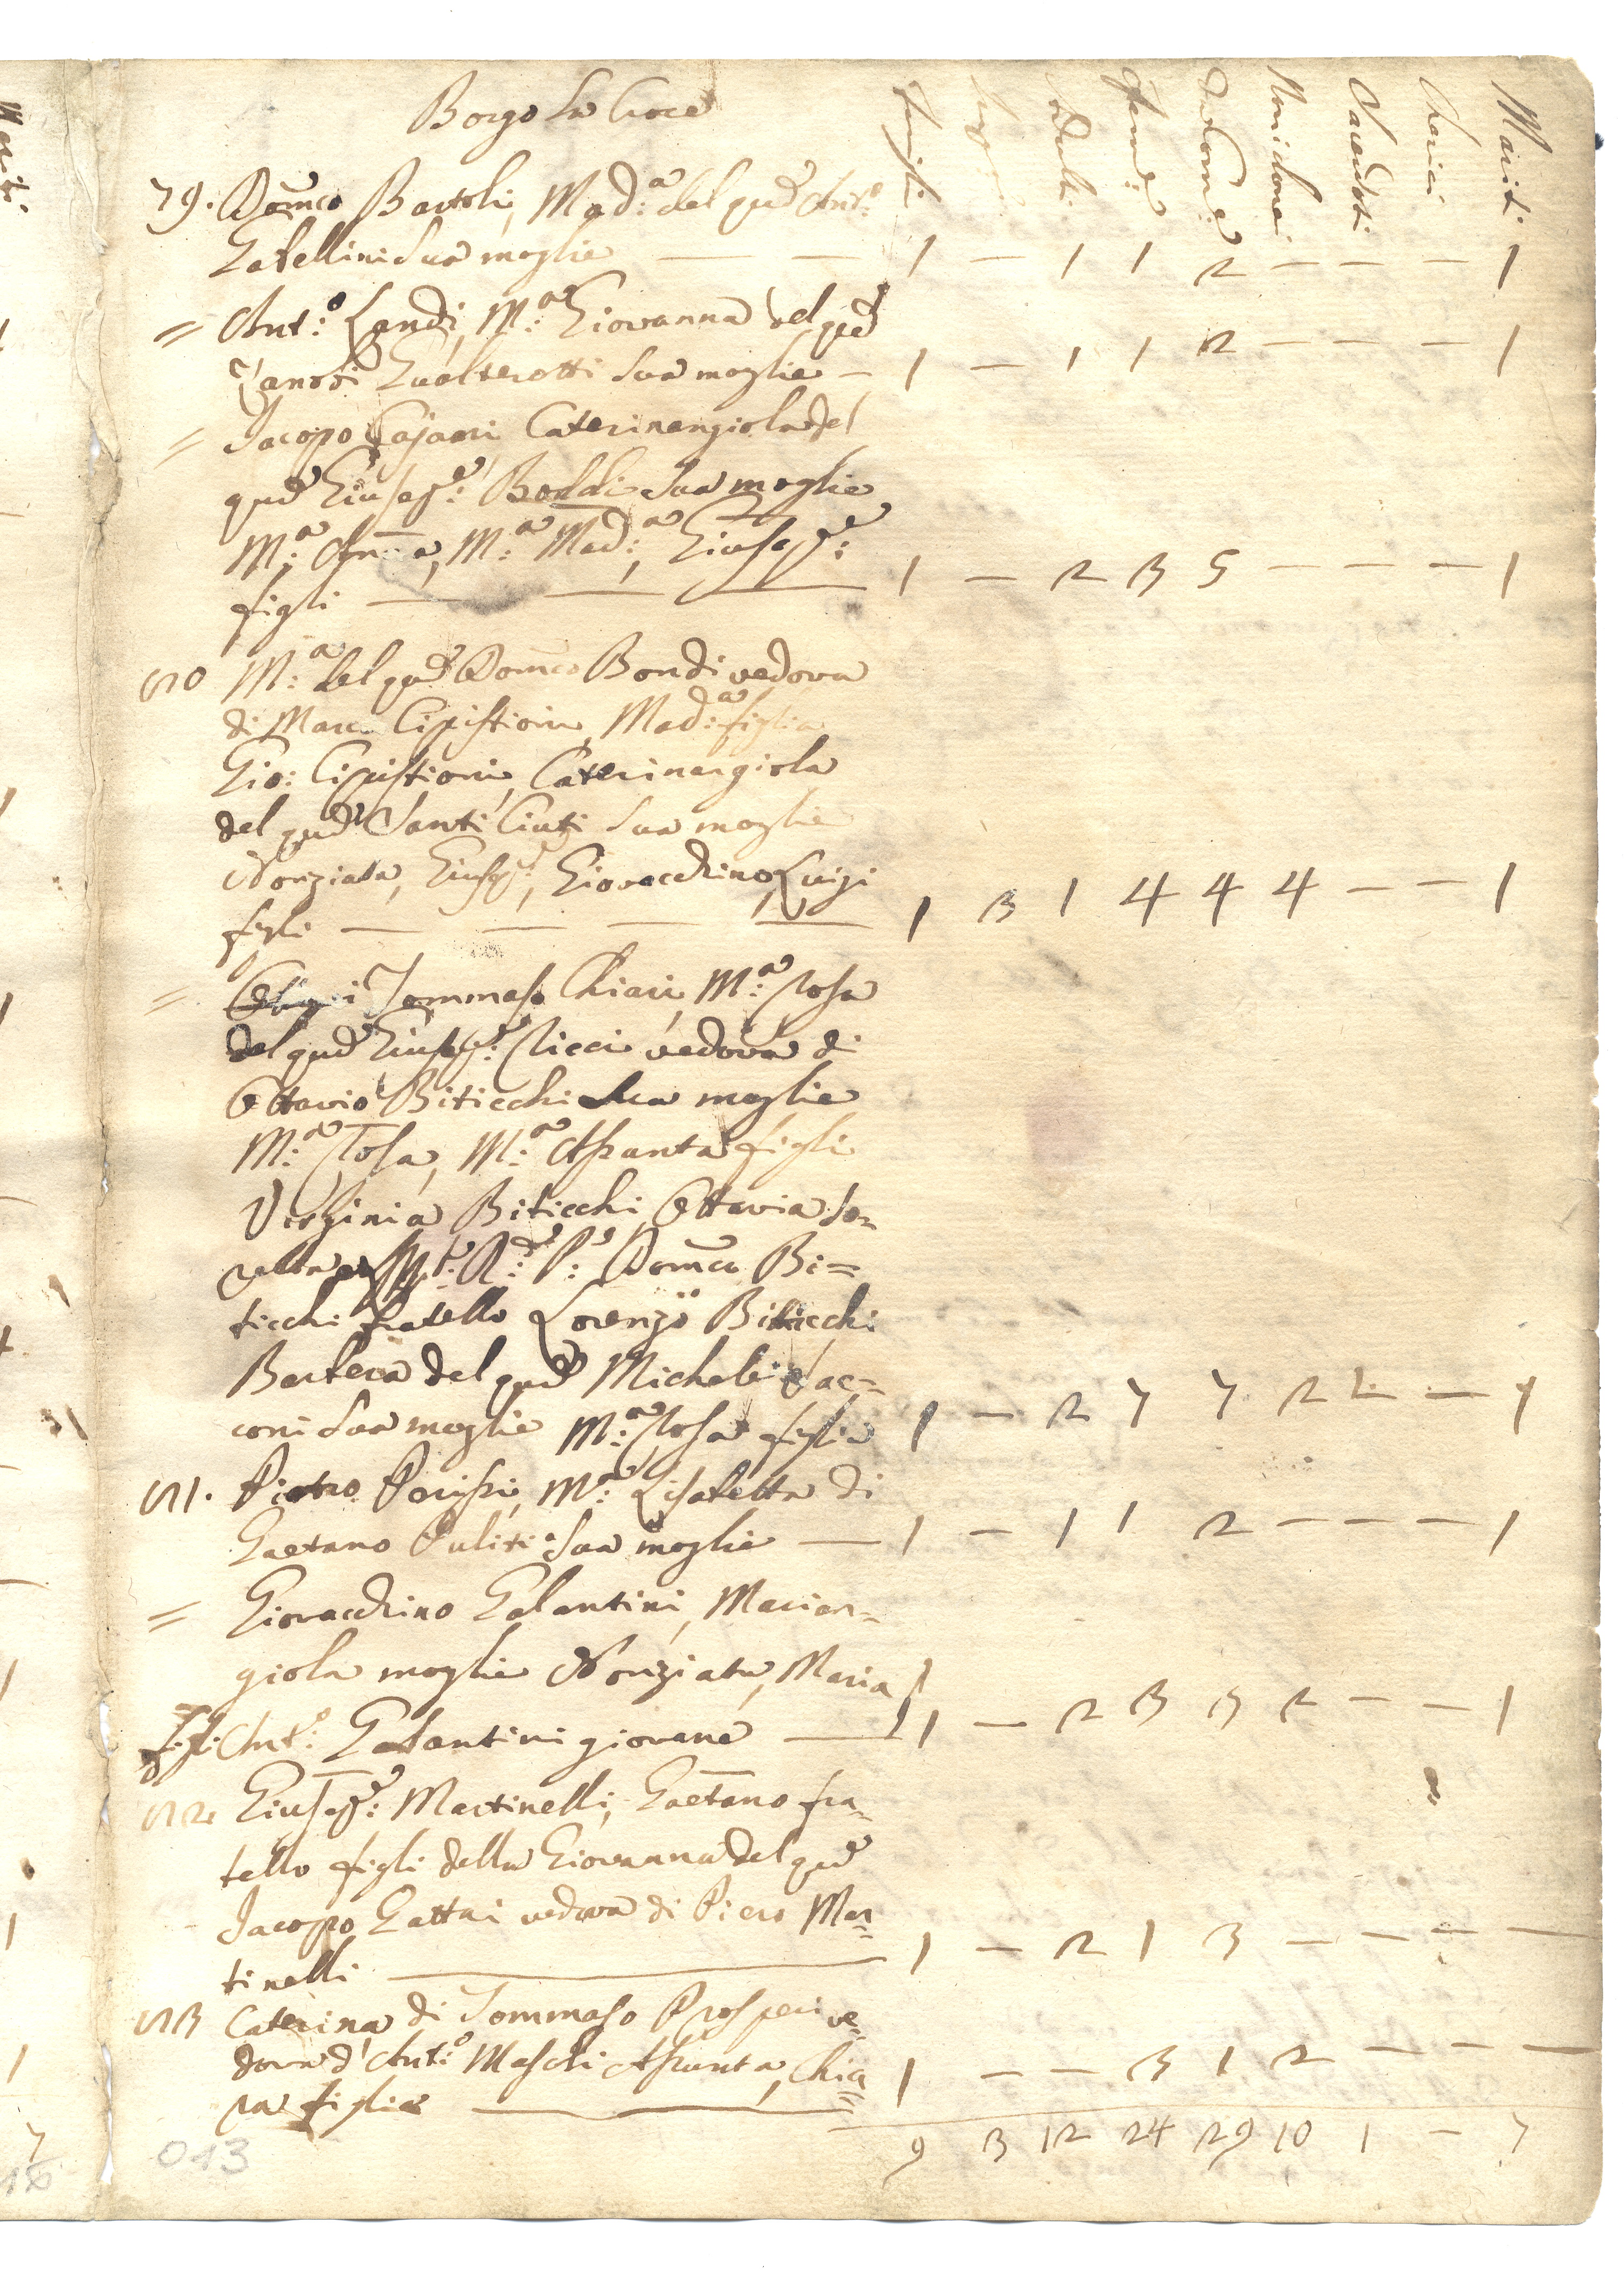 Borgo la Croce
Famigli: Adulti Femi: Comuni: Noncõni Sacerdoti Cherici Mariti
79. Dom̃co Bartoli, Mad:a del qud: Ant:o
Gabellini Sua moglie — — — 1 — 1 1 2 — — — 1
= Ant:o Landi, M:a Giovanna del qud
Zanobi Gualterotti Sua moglie — 1 — 1 1 2 — — — 1
= Jacopo Cajani Caterinangiola del
qud Giusep:e Boddi Sua moglie
M:a Anna, M:a Mad:a, Giusep:e
figli — — — 1 — 2 3 5 — — — 1
80 M:a del qud Dom̃co Bondi vedova
di Marco Cipistioni, Mad:a figlia
Gio: Cipistioni, Caterinangiola
del qud Santi Ciuti Sua moglie
Nonziata, Giusep:e, Giovacchino, Luigi
figli — — — — 1 3 1 4 4 4 — — 1
= Tommaso Chiari, M:a Rosa
del qud Giusep:e Ricci vedova di
Ottavio Biticchi Sua moglie
M:a Rosa, M:a Assunta figli
Virginia Biticchi, Ottavia So=
rella R:do P: Dom̃co Bi=
ticchi fratello Lorenzo Biticchi
Bartera del qud Michele Sac=
coni Sua moglie M:a Rosa figlia 1 — 2 7 7 2 1 — 1
81. Pietro Parissi, M:a Lisabetta di
Gaetano Puliti Sua moglie — 1 — 1 1 2 — — — 1
= Giovacchino Galantini, Marian=
giola moglie Nonziata, Maria
figli Ant:o Galantini giovane — 1 — 2 3 3 2 — — 1
82 Giusep:e Martinelli, Gaetano fra=
tello figli della Giovanna del qud
Jacopo Gattai vedova di Piero Mar=
tinelli — 1 — 2 1 3 — — — —
83 Caterina di Tommaso Prosperi ve=
dova d'Ant:o Maschi Assunta, Chia=
ra figlie — 1 — — 3 1 2 — — —
9 3 12 24 29 10 1 — 7
013